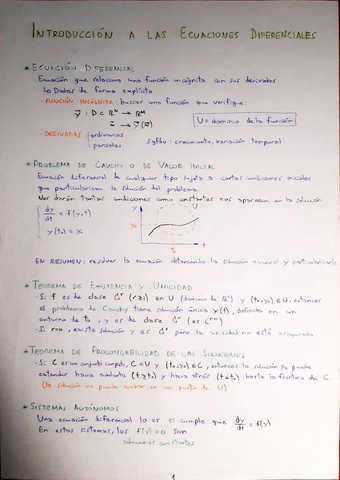 INTRODUCCIÓN A LAS ECUACIONES DIFERENCIALES
* ECUACIÓN DIFERENCIAL
Ecuación que relaciona una función incógnita con sus derivadas
↳ Dadas de forma explícita
· FUNCIÓN INCÓGNITA: buscar una función que verifique:
U = dominio de la función
· DERIVADAS ordinarias
parciales
Sgfdo: crecimiento, variación temporal
* PROBLEMA DE CAUCHY O DE VALOR INICIAL
Ecuación diferencial de cualquier tipo sujeta a ciertas condiciones iniciales
que particularizan la solución del problema.
Nos darán tantas condiciones como constantes nos aparecen en la solución
dy/dt = f(y,t)
y(t₀) = y₀
y
t
EN RESUMEN: resolver la ecuación obteniendo la solución general y particularizarla
* TEOREMA DE EXISTENCIA Y UNICIDAD
· Si f es de clase (r≥1) en U (dominio de ) y (t₀,y₀) ∈ U, entonces
el problema de Cauchy tiene solución única y(t), definida en un
entorno de t₀, y es de clase
· Si r=0, existe solución y es pero la unicidad no está asegurada
* TEOREMA DE PROLONGABILIDAD DE LAS SOLUCIONES
· Si C es un conjunto compacto, C⊂U y (t₀,y₀)∈C, entonces la solución se puede
extender hacia adelante (t>t₀) y hacia atrás (t<t₀) hasta la frontera de C.
(la solución no puede acabar en un punto de U)
* SISTEMAS AUTÓNOMOS
Una ecuación diferencial lo es si cumple que dy/dt = f(y)
En estos sistemas, las f(y)=0 son
soluciones constantes
1